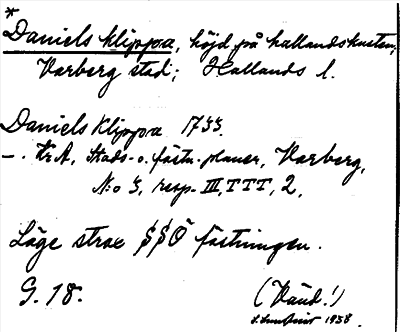 *
Daniels klippa, höjd på hallandskusten;
Varberg stad; Hallands l.
Daniels Klippa 1733.
–. Kr.A, Stads- o. fästn.-planer, Varberg,
N:o 3, resp. III, TTT, 2.
Läge strax SSÖ fästningen.
G. 18.
(Vänd!)
1938.